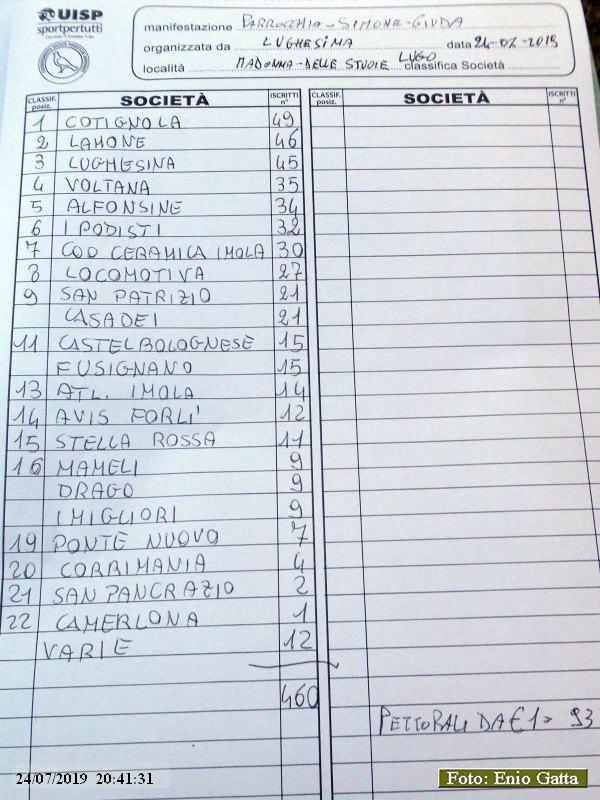 UISP
sportpertutti
manifestazione PARROCCHIA - SIMONE - GIUDA
organizzata da LUGHESINA data 24-07-2019
località MADONNA - DELLE STUOIE LUGO classifica Società
CLASSIF. posiz. SOCIETÀ ISCRITTI n° CLASSIF. posiz. SOCIETÀ ISCRITTI n°
1 COTIGNOLA 49
2 LAMONE 46
3 LUGHESINA 45
4 VOLTANA 35
5 ALFONSINE 34
6 I PODISTI 32
7 COO CERAMICA IMOLA 30
8 LOCOMOTIVA 27
9 SAN PATRIZIO 21
CASADEI 21
11 CASTELBOLOGNESE 15
FUSIGNANO 15
13 ATL. IMOLA 14
14 AVIS FORLI' 12
15 STELLA ROSSA 11
16 MAMELI 9
DRAGO 9
I MIGLIORI 9
19 PONTE NUOVO 7
20 CORRIMANIA 4
21 SAN PANCRAZIO 2
22 CAMERLONA 1
VARIE 12
460
PETTORALI DA € 1 = 93
24/07/2019 20:41:31
Foto: Enio Gatta